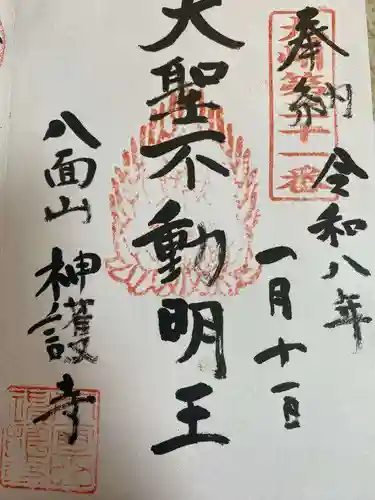 奉納
令和八年
一月十一日
大聖不動明王
八面山
神護寺